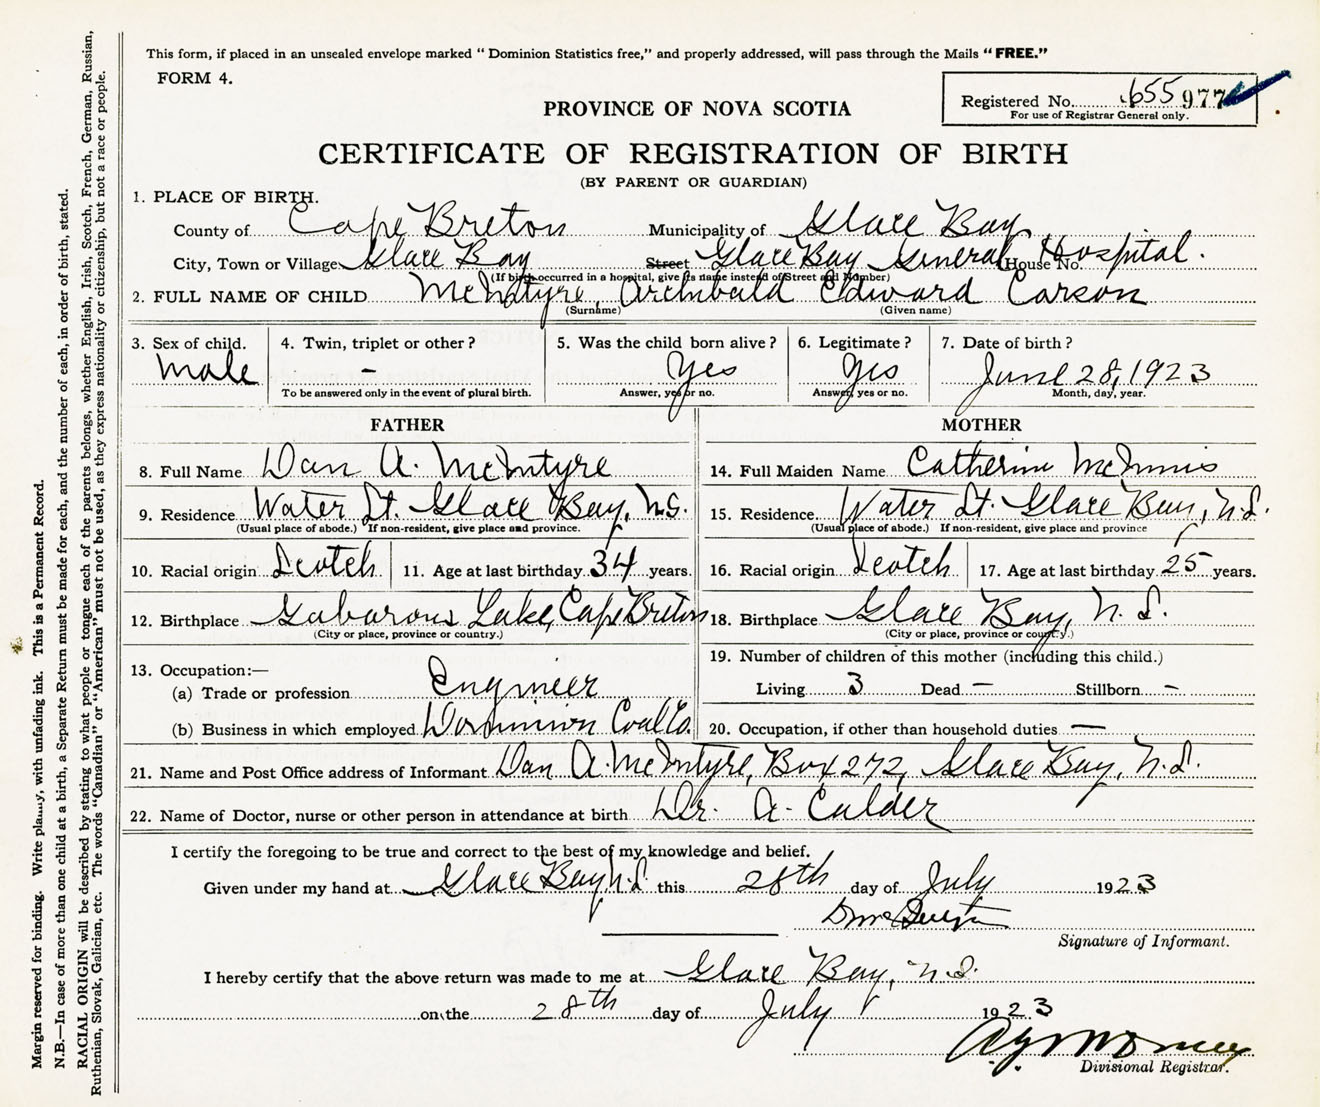 This form, if placed in an unsealed envelope marked "Dominion Statistics free," and properly addressed, will pass through the Mails "FREE."
FORM 4.
Registered No. 655 977
For use of Registrar General only.
PROVINCE OF NOVA SCOTIA
CERTIFICATE OF REGISTRATION OF BIRTH
(BY PARENT OR GUARDIAN)
1. PLACE OF BIRTH.
County of Cape Breton Municipality of Glace Bay
City, Town or Village Glace Bay Street Glace Bay General Hospital. House No.
(If birth occurred in a hospital, give its name instead of Street and Number)
2. FULL NAME OF CHILD McIntyre, Archibald Edward Carson
(Surname) (Given name)
3. Sex of child. 4. Twin, triplet or other? 5. Was the child born alive? 6. Legitimate? 7. Date of birth?
Male - Yes Yes June 28, 1923
To be answered only in the event of plural birth. Answer, yes or no. Answer, yes or no. Month, day, year.
FATHER MOTHER
8. Full Name Dan A. McIntyre 14. Full Maiden Name Catherine McInnis
9. Residence Water St. Glace Bay, N.S. 15. Residence Water St. Glace Bay, N.S.
(Usual place of abode.) If non-resident, give place and province. (Usual place of abode.) If non-resident, give place and province
10. Racial origin Scotch 11. Age at last birthday 34 years. 16. Racial origin Scotch 17. Age at last birthday 25 years.
12. Birthplace Gabarous Lake, Cape Breton 18. Birthplace Glace Bay, N.S.
(City or place, province or country.) (City or place, province or country.)
13. Occupation:— 19. Number of children of this mother (including this child.)
(a) Trade or profession Engineer Living 3 Dead — Stillborn -
(b) Business in which employed Dominion Coal Co. 20. Occupation, if other than household duties —
21. Name and Post Office address of Informant Dan A. McIntyre, Box 272, Glace Bay, N.S.
22. Name of Doctor, nurse or other person in attendance at birth Dr. A. Calder
I certify the foregoing to be true and correct to the best of my knowledge and belief.
Given under my hand at Glace Bay N.S. this 28th day of July 1923
Signature of Informant.
I hereby certify that the above return was made to me at Glace Bay, N.S.
on the 28th day of July 1923
Divisional Registrar.
Margin reserved for binding. Write plainly, with unfading ink. This is a Permanent Record.
N.B.—In case of more than one child at a birth, a Separate Return must be made for each, and the number of each, in order of birth, stated.
RACIAL ORIGIN will be described by stating to what people or tongue each of the parents belongs, whether English, Irish, Scotch, French, German, Russian,
Ruthenian, Slovak, Galician, etc. The words "Canadian" or "American" must not be used, as they express nationality or citizenship, but not a race or people.